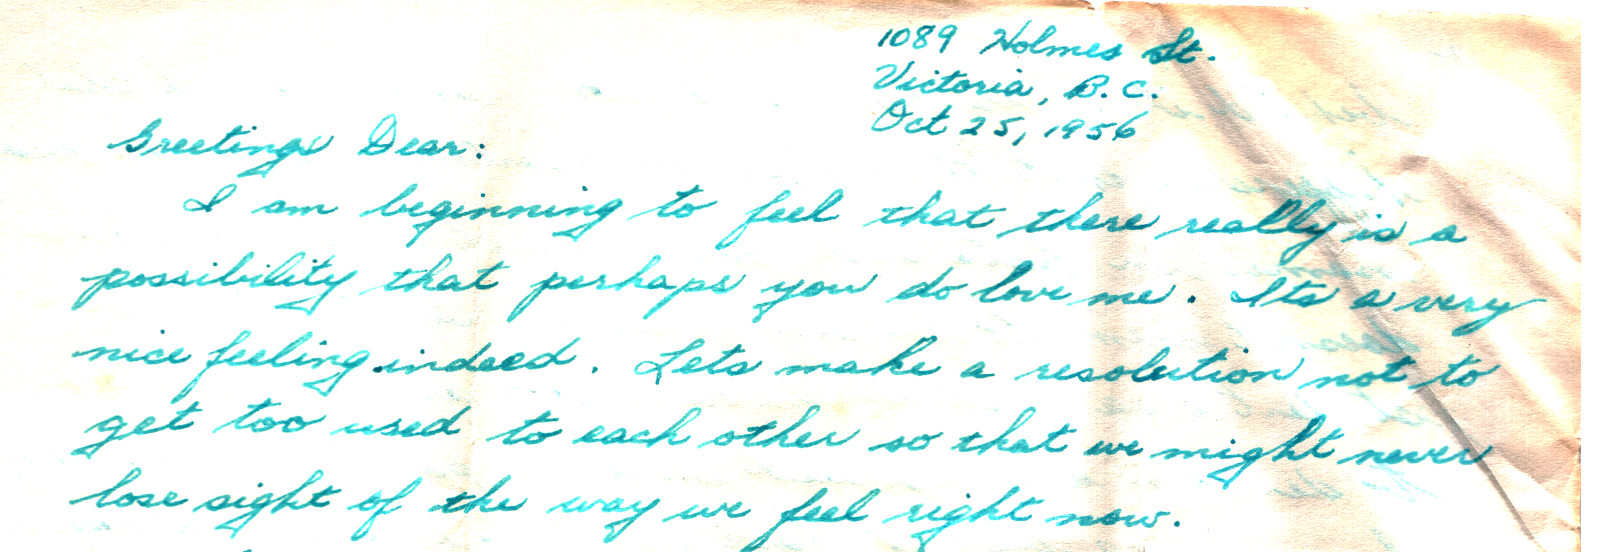 1089 Holmes St.
Victoria, B.C.
Oct 25, 1956
Greetings Dear:
I am beginning to feel that there really is a
possibility that perhaps you do love me. Its a very
nice feeling indeed. Lets make a resolution not to
get too used to each other so that we might never
lose sight of the way we feel right now.